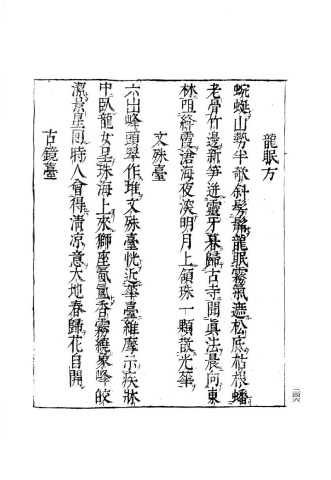 龍眠方
蜿蜒山勢半欹斜髣髴龍眠霧氣遮松底枯根蟠
老骨竹邊新笋迸靈牙暮歸古寺聞眞法晨向東
林阻絳霞滄海夜深明月上領珠一顆散光華
文殊臺
六出峰頭翠作堆文殊臺恍近華臺維摩示疾牀
中臥龍女呈珠海上來獅座氤氳香霧繞象峰皎
潔景星回時人會得清凉意大地春歸花自開
古鏡臺
二四六